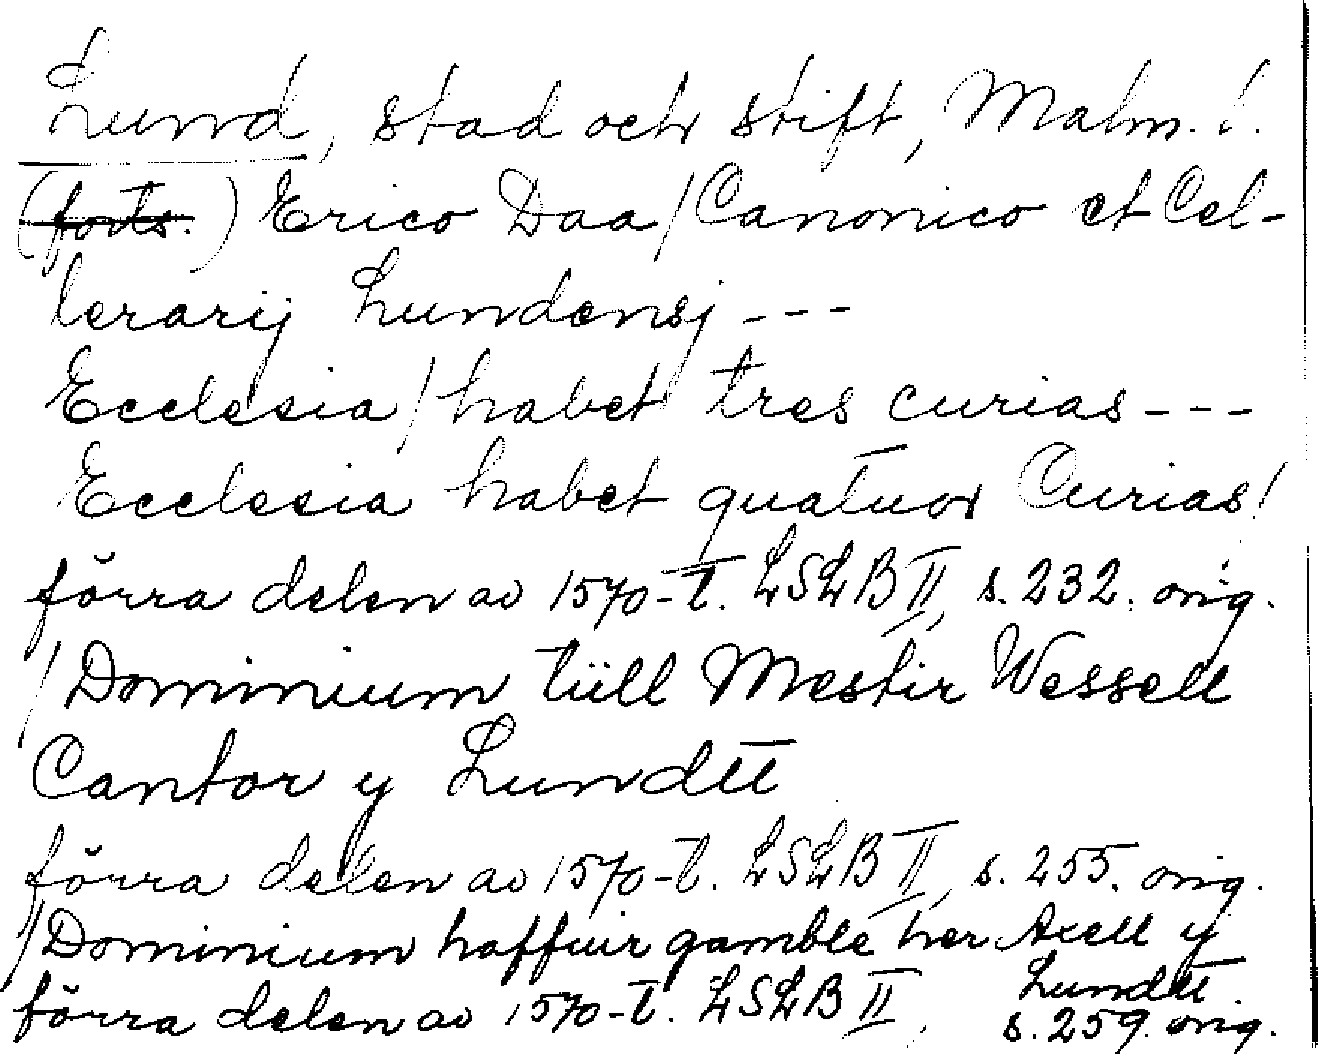 Lund, stad och stift, Malm. l.
(forts.) Erico Daa / Canonico et Cel-
lerarij Lundensj ---
Ecclesia / habet tres curias ---
Ecclesia habet quatuor Curias /
förra delen av 1570-t. LSLB II, s. 232. orig.
/ Dominium tüll Mestir Wessell
Cantor y Lundtt
förra delen av 1570-t. LSLB II, s. 255. orig.
/ Dominium haffuir gamble her Axell y
Lundtt.
förra delen av 1570-t. LSLB II, s. 259. orig.